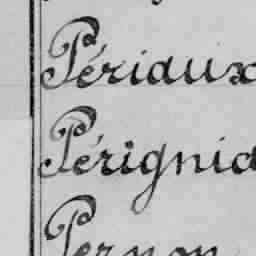 Périaux
Pérignia
Pernon